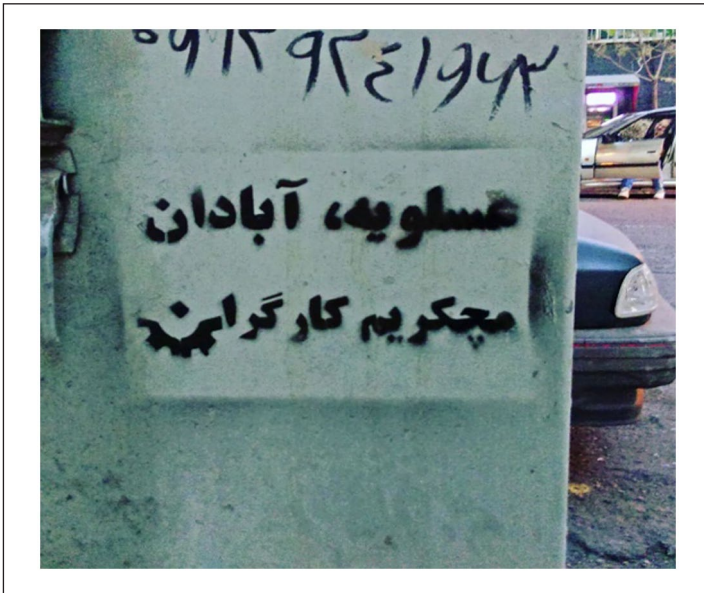 ۰۹۱۲۹۲٤۱۹۶۳
عسلویه، آبادان
مچکریم کارگران